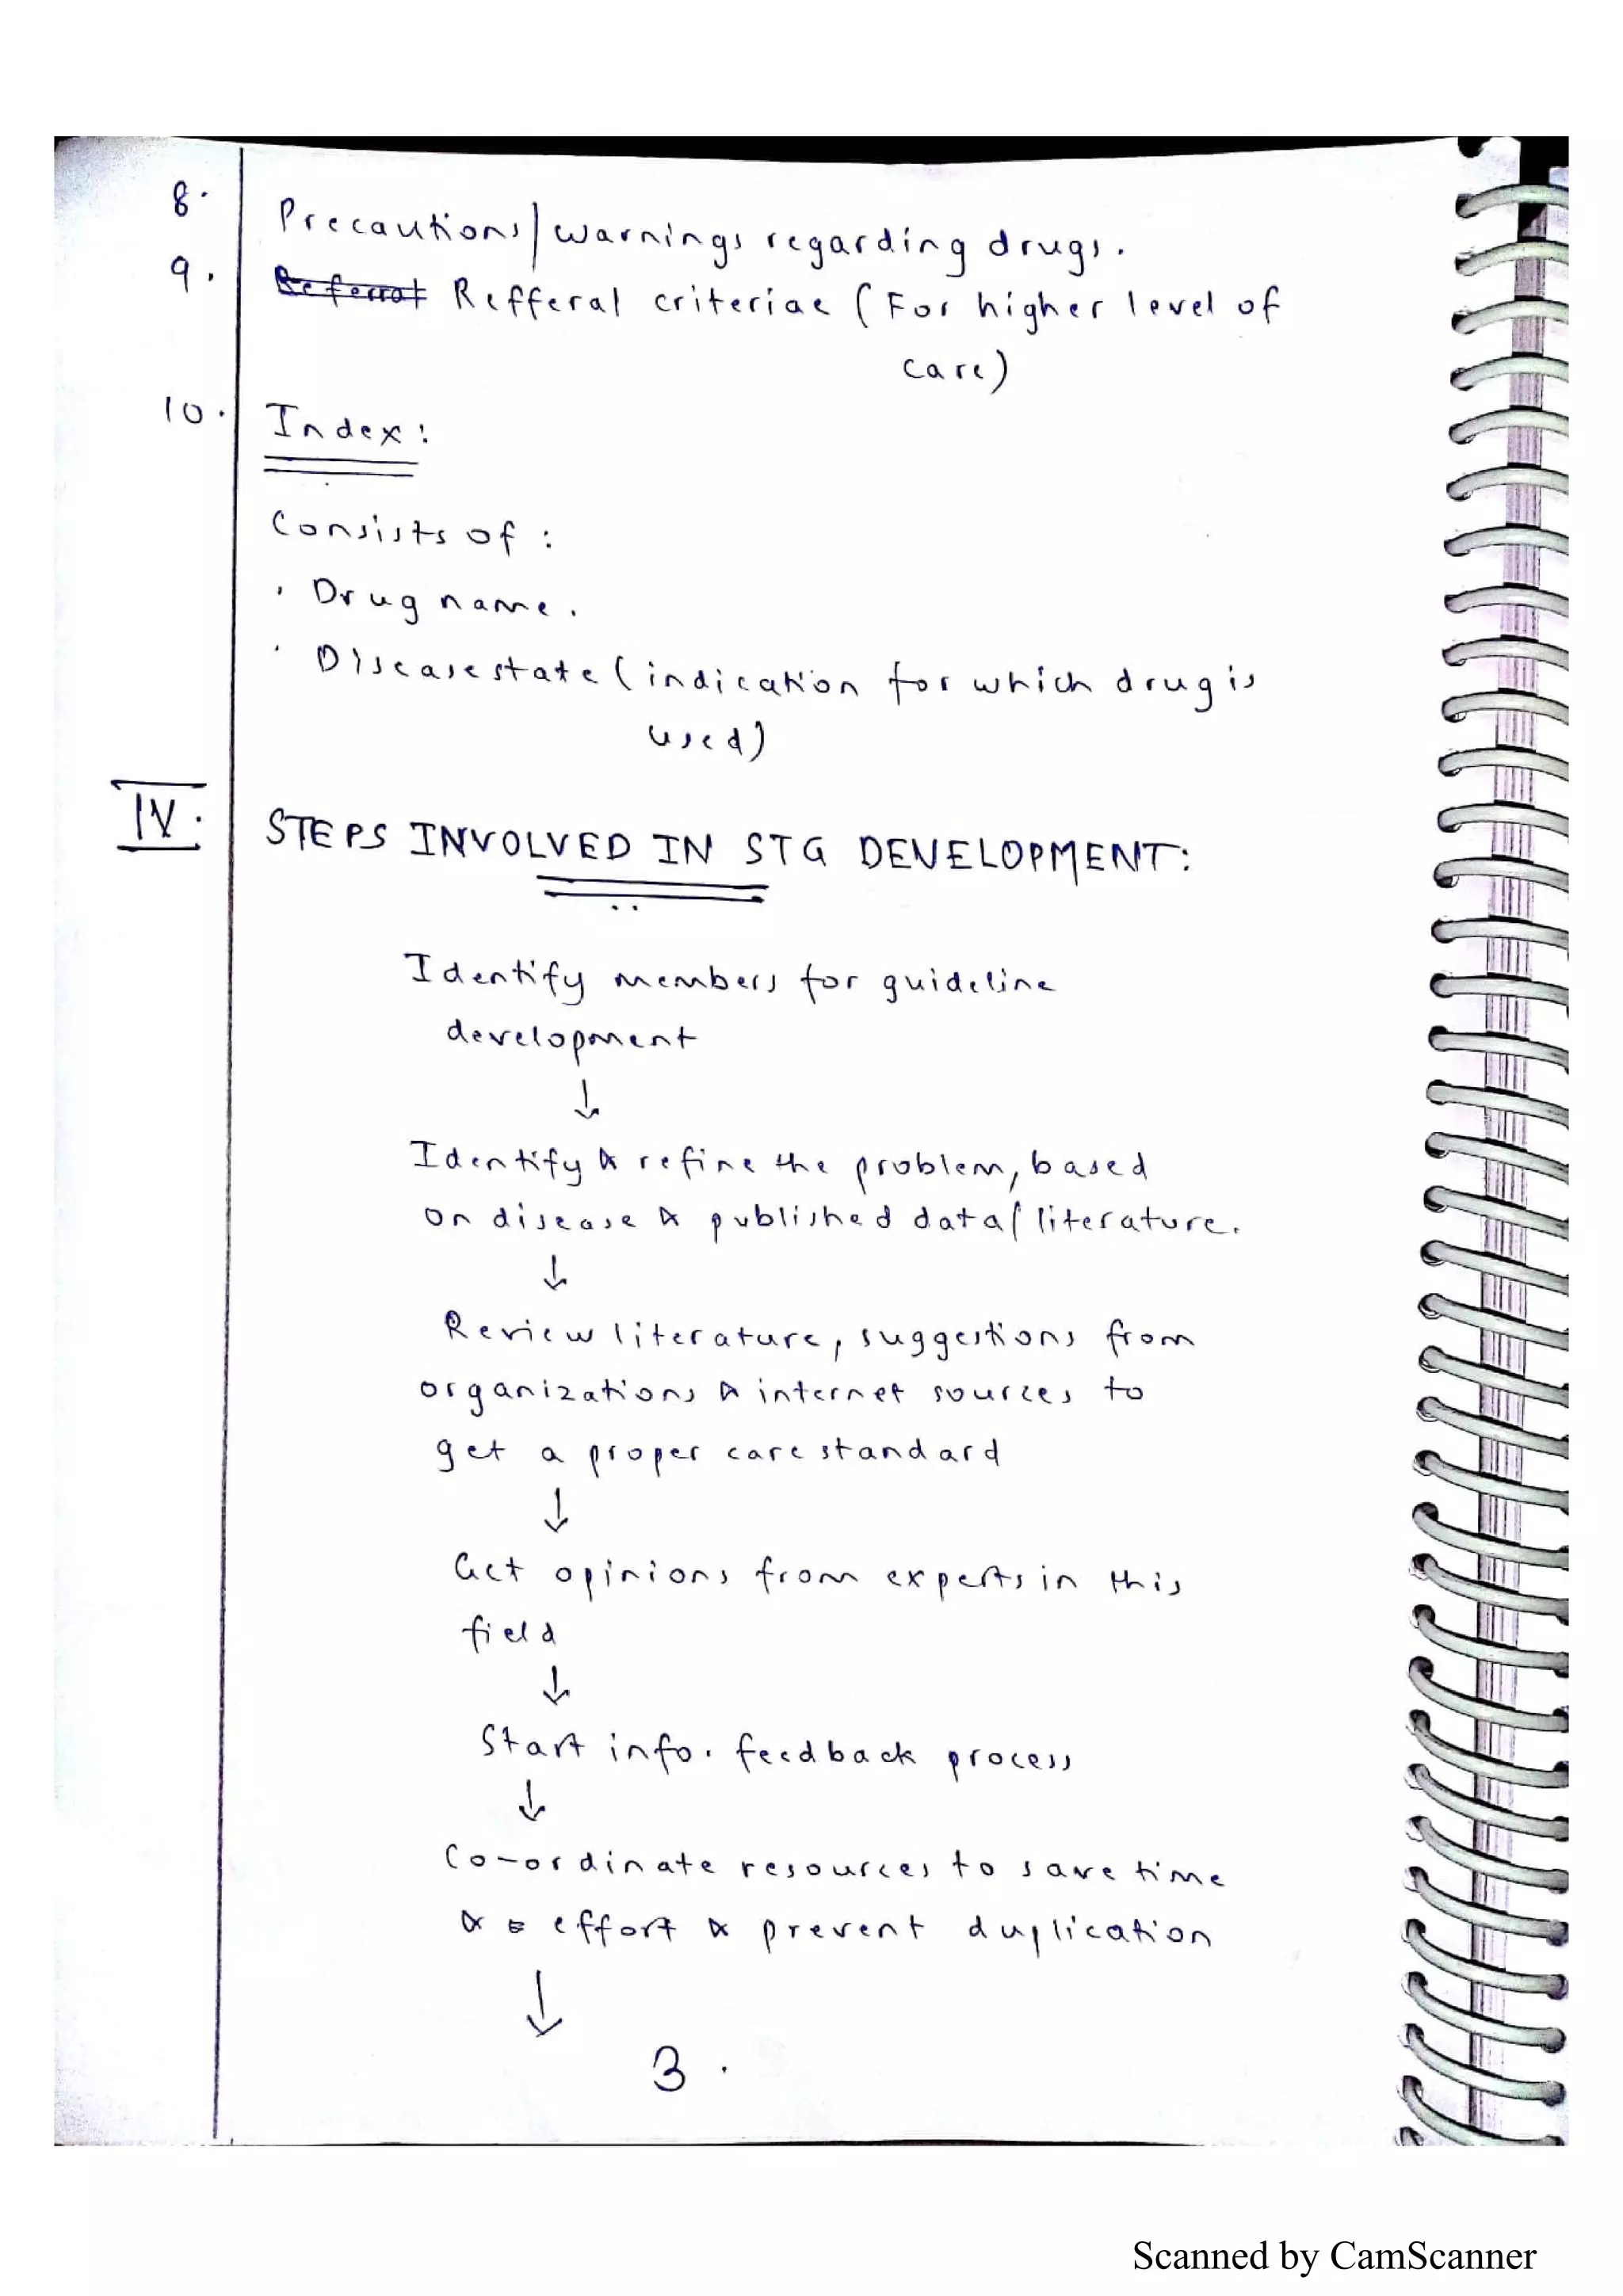 8. Precautions/warnings regarding drugs.
9. Referrat Refferal criteriae (For higher level of
care)
10. Index:
Consists of :
• Drug name.
• Disease state (indication for which drug is
used)
IV. STEPS INVOLVED IN STG DEVELOPMENT:
Identify members for guideline
development
↓
Identify & refine the problem, based
on disease & published data/literature.
↓
Review literature, suggestions from
organizations & internet sources to
get a proper care standard
↓
Get opinions from experts in this
field
↓
Start info. feedback process
↓
Co-ordinate resources to save time
& effort & prevent duplication
↓
3.
Scanned by CamScanner